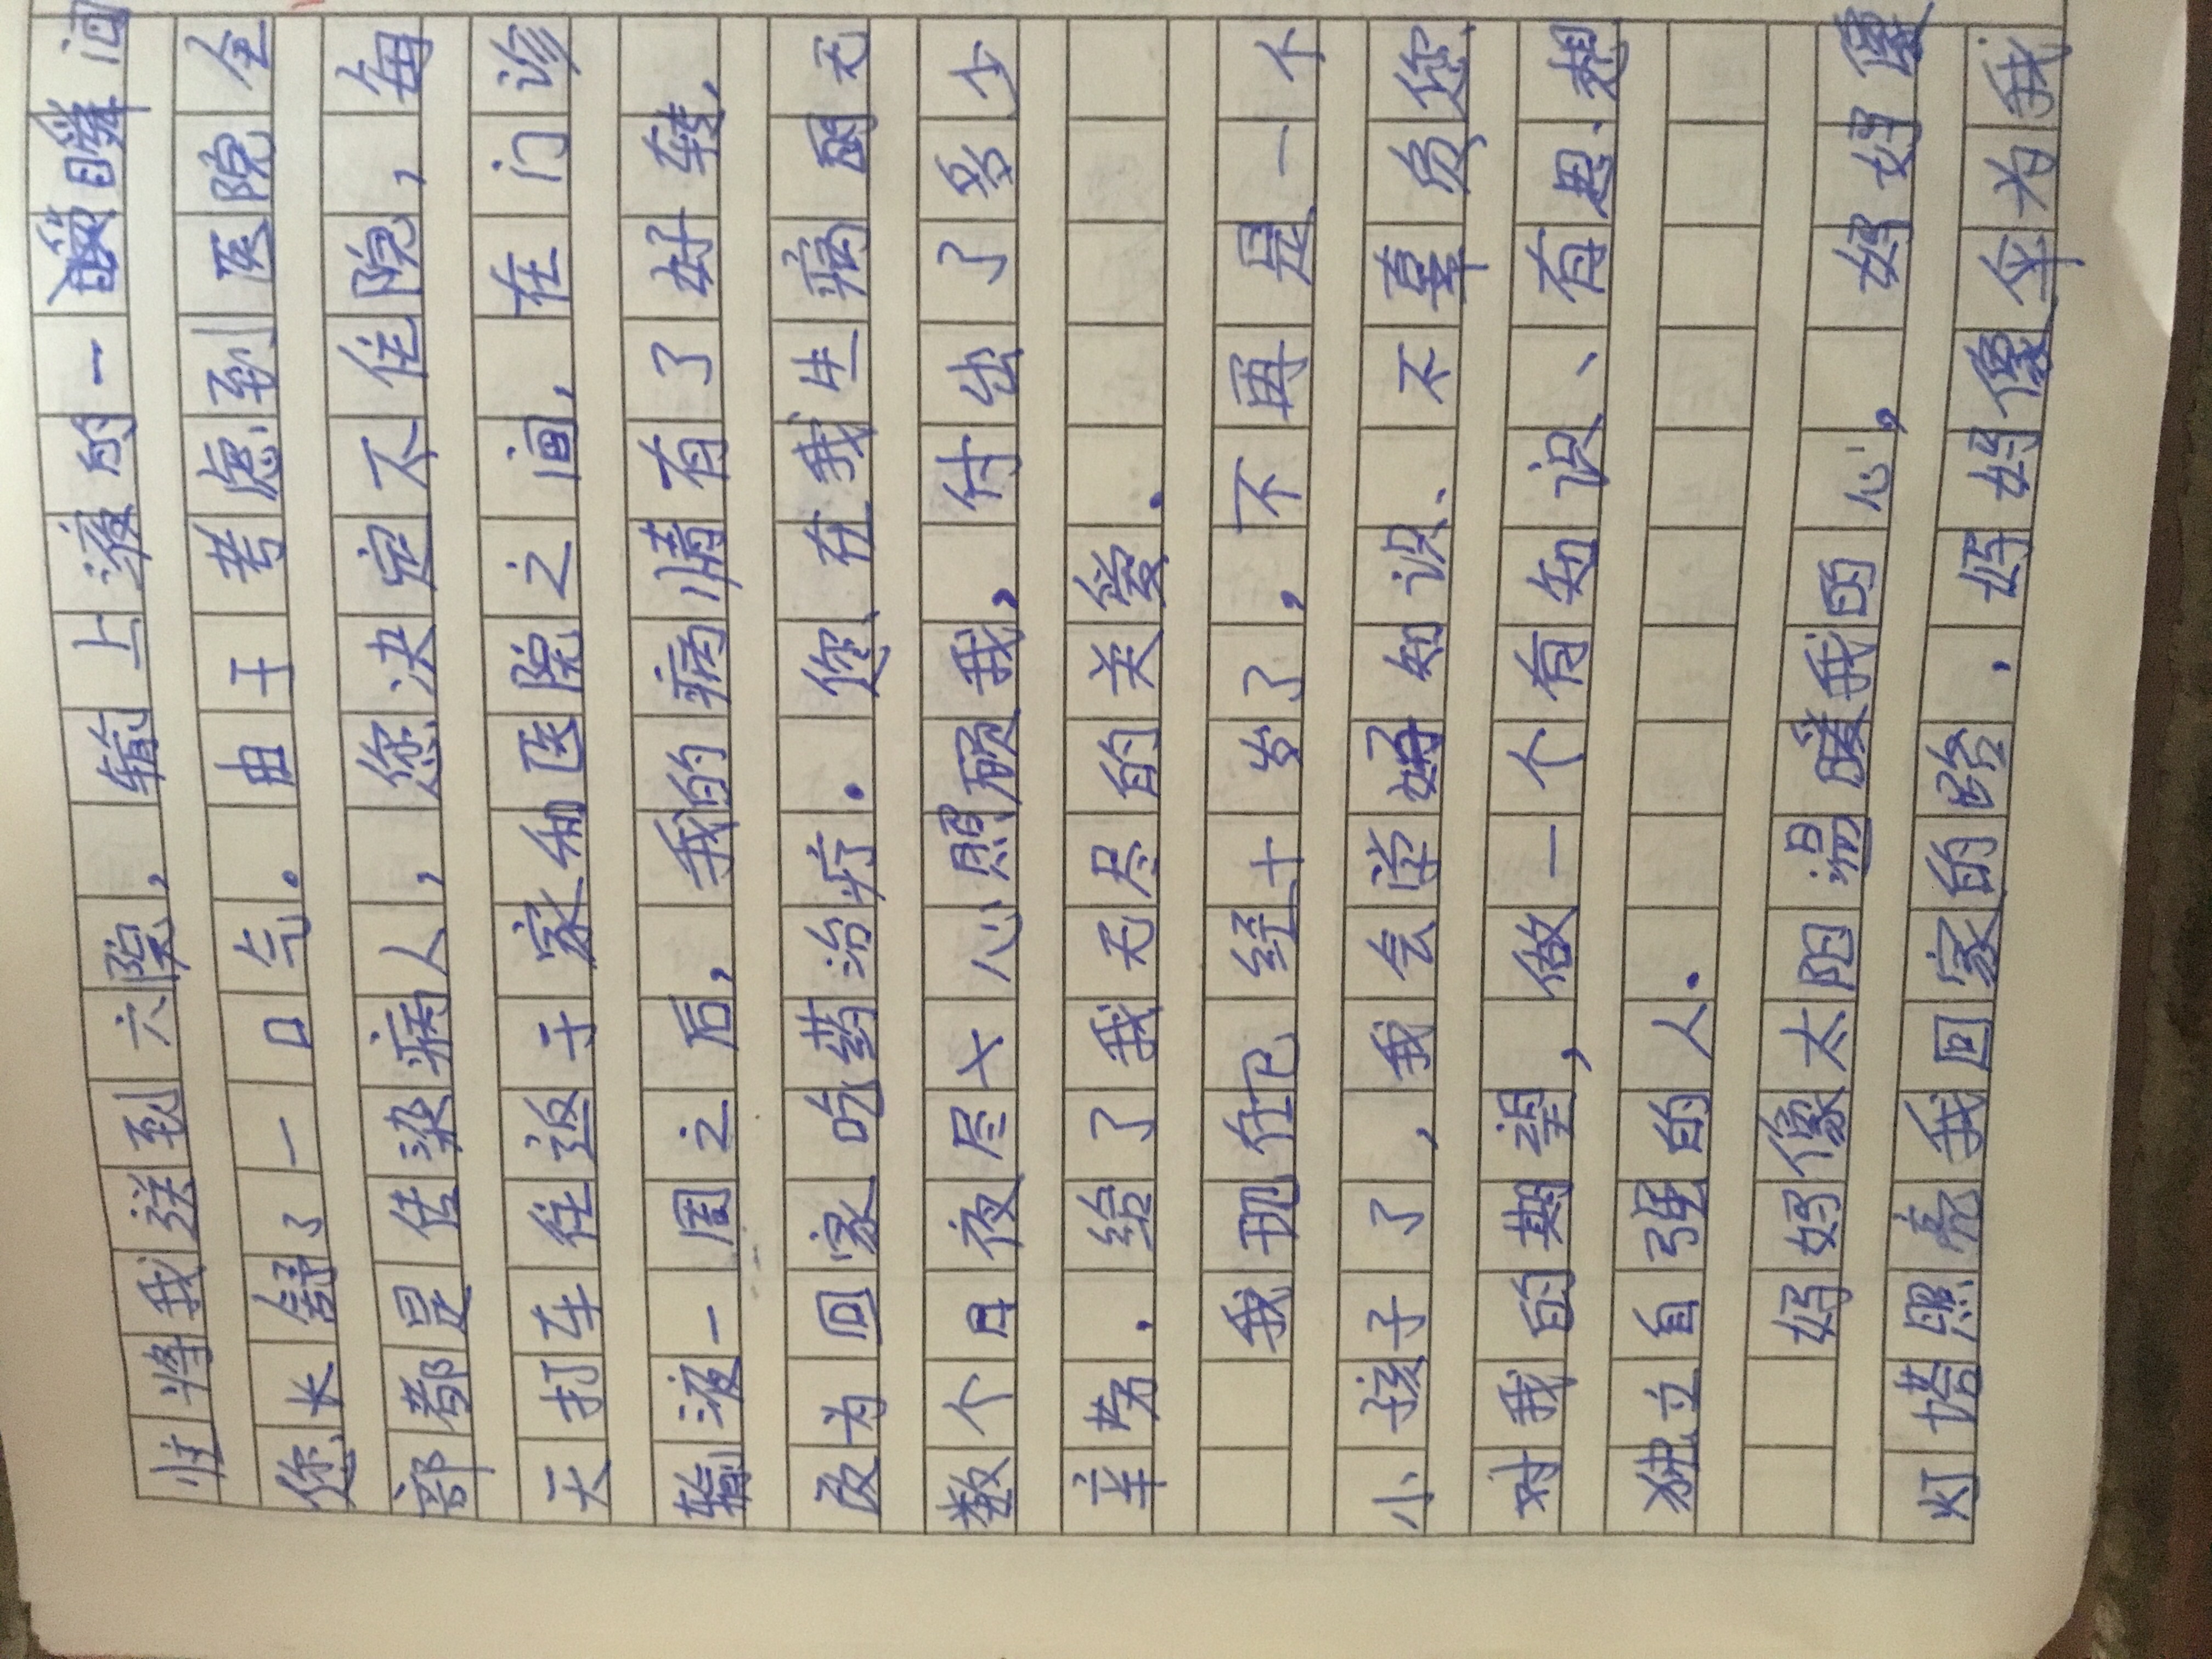 忙将我送到六院，输上液的一瞬间
您长舒了一口气。由于考虑到医院全
部都是传染病人，您决定不住院，每
天打车往返于家和医院之间，在门诊
输液一周之后，我的病情有了好转，
改为回家吃药治疗。您在我生病的无
数个日夜尽心照顾我，付出了多少
辛劳.给了我无尽的关爱.
我现在已经十岁了，不再是一个
小孩子了，我会学好知识、不辜负您
对我的期望，做一个有知识、有思想
独立自强的人.
妈妈像太阳温暖我的心，妈妈像
灯塔照亮我回家的路，妈妈像伞为我